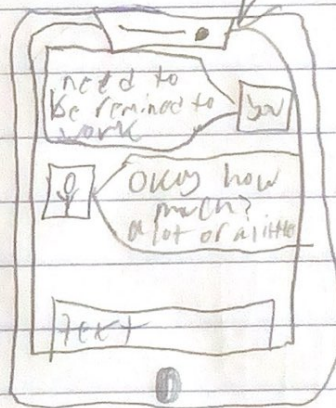 need to
be remined to
work
you
Okay how
much?
a lot or a little
text